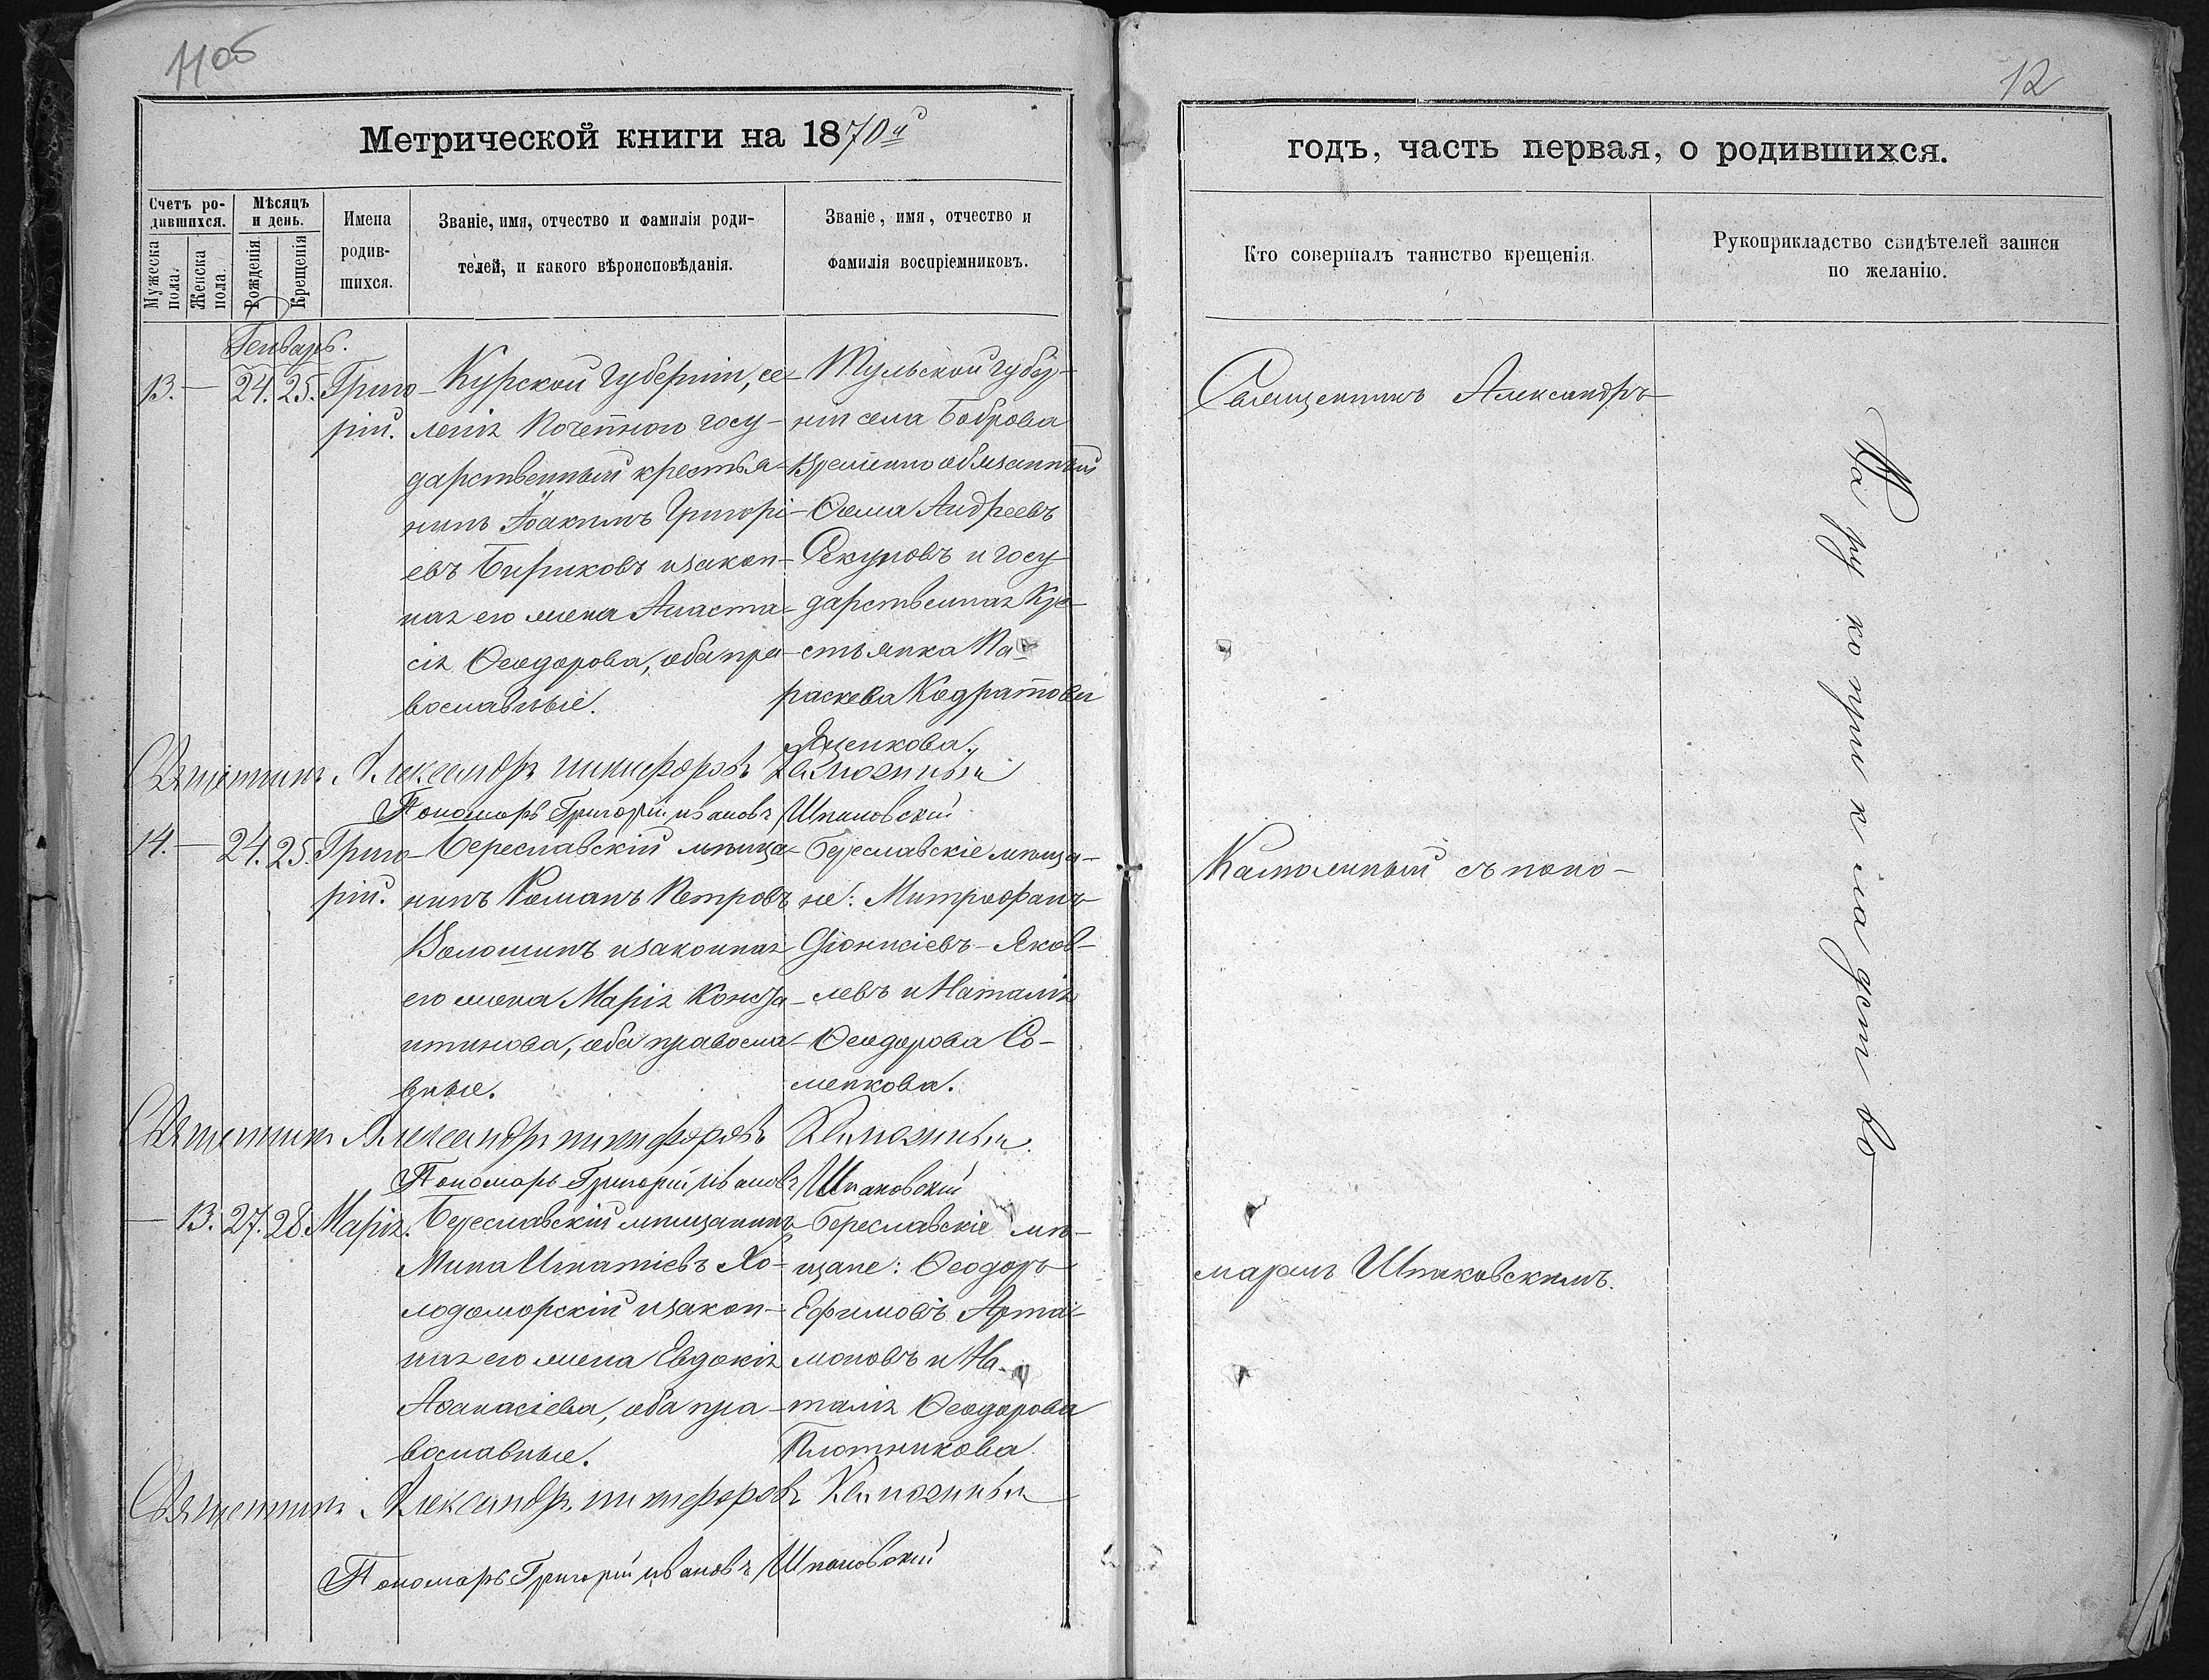 11об
Метрической книги на 1870й
Счетъ ро-
дившихся.
Мужеска
пола.
Женска
пола.
Мѣсяцъ
и день.
Рожденія
Крещенія
Имена
родив-
шихся.
Званіе, имя, отчество и фамилія роди-
телей, и какого вѣроисповѣданія.
Званіе, имя, отчество и
фамилія воспріемниковъ.
Генварь.
13. — 24. 25. Григо-
рій.
Курской губерніи, се-
ленія Почетного госу-
дарственный крестья-
нинъ Іоакимъ Григорі-
евъ Бириковъ и закон-
ная его жена Анаста-
сія Ѳеодорова, оба пра-
вославные.
Тульской губер-
ніи села Боброва
временно обязанный
Ѳома Андреевъ
Секуровъ и госу-
дарственная кре-
стьянка Па-
раскева Кодратова
Яценкова.
Священникъ Александръ Никифоровъ
Пономарь Григорій Ивановъ Шпаковскій
14. — 24. 25. Григо-
рій.
Береславскій мѣща-
нинъ Романъ Петровъ
Волошинъ и законная
его жена Марія Конста-
нтинова, оба правосла-
вные.
Береславскіе мѣща-
не: Митрофанъ
Діонисіевъ Яков-
левъ и Наталія
Ѳеодорова Со-
менкова.
Священникъ Александръ Никифоровъ
Пономарь Григорій Ивановъ Шпаковскій
— 13. 27. 28. Марія.
Береславскій мѣщанинъ
Мина Игнатіевъ Хо-
лодоморскій и закон-
ная его жена Евдокія
Аѳанасіева, оба пра-
вославные.
Береславскіе мѣ-
щане: Ѳеодоръ
Ефимовъ Арта-
моновъ и На-
талія Ѳеодорова
Плотникова
Священникъ Александръ Никифоровъ
Пономарь Григорій Ивановъ Шпаковскій
12
годъ, часть первая, о родившихся.
Кто совершалъ таинство крещенія.
Рукоприкладство свидѣтелей записи
по желанію.
Священникъ Александръ
съ поно-
маремъ Шпаковскимъ.